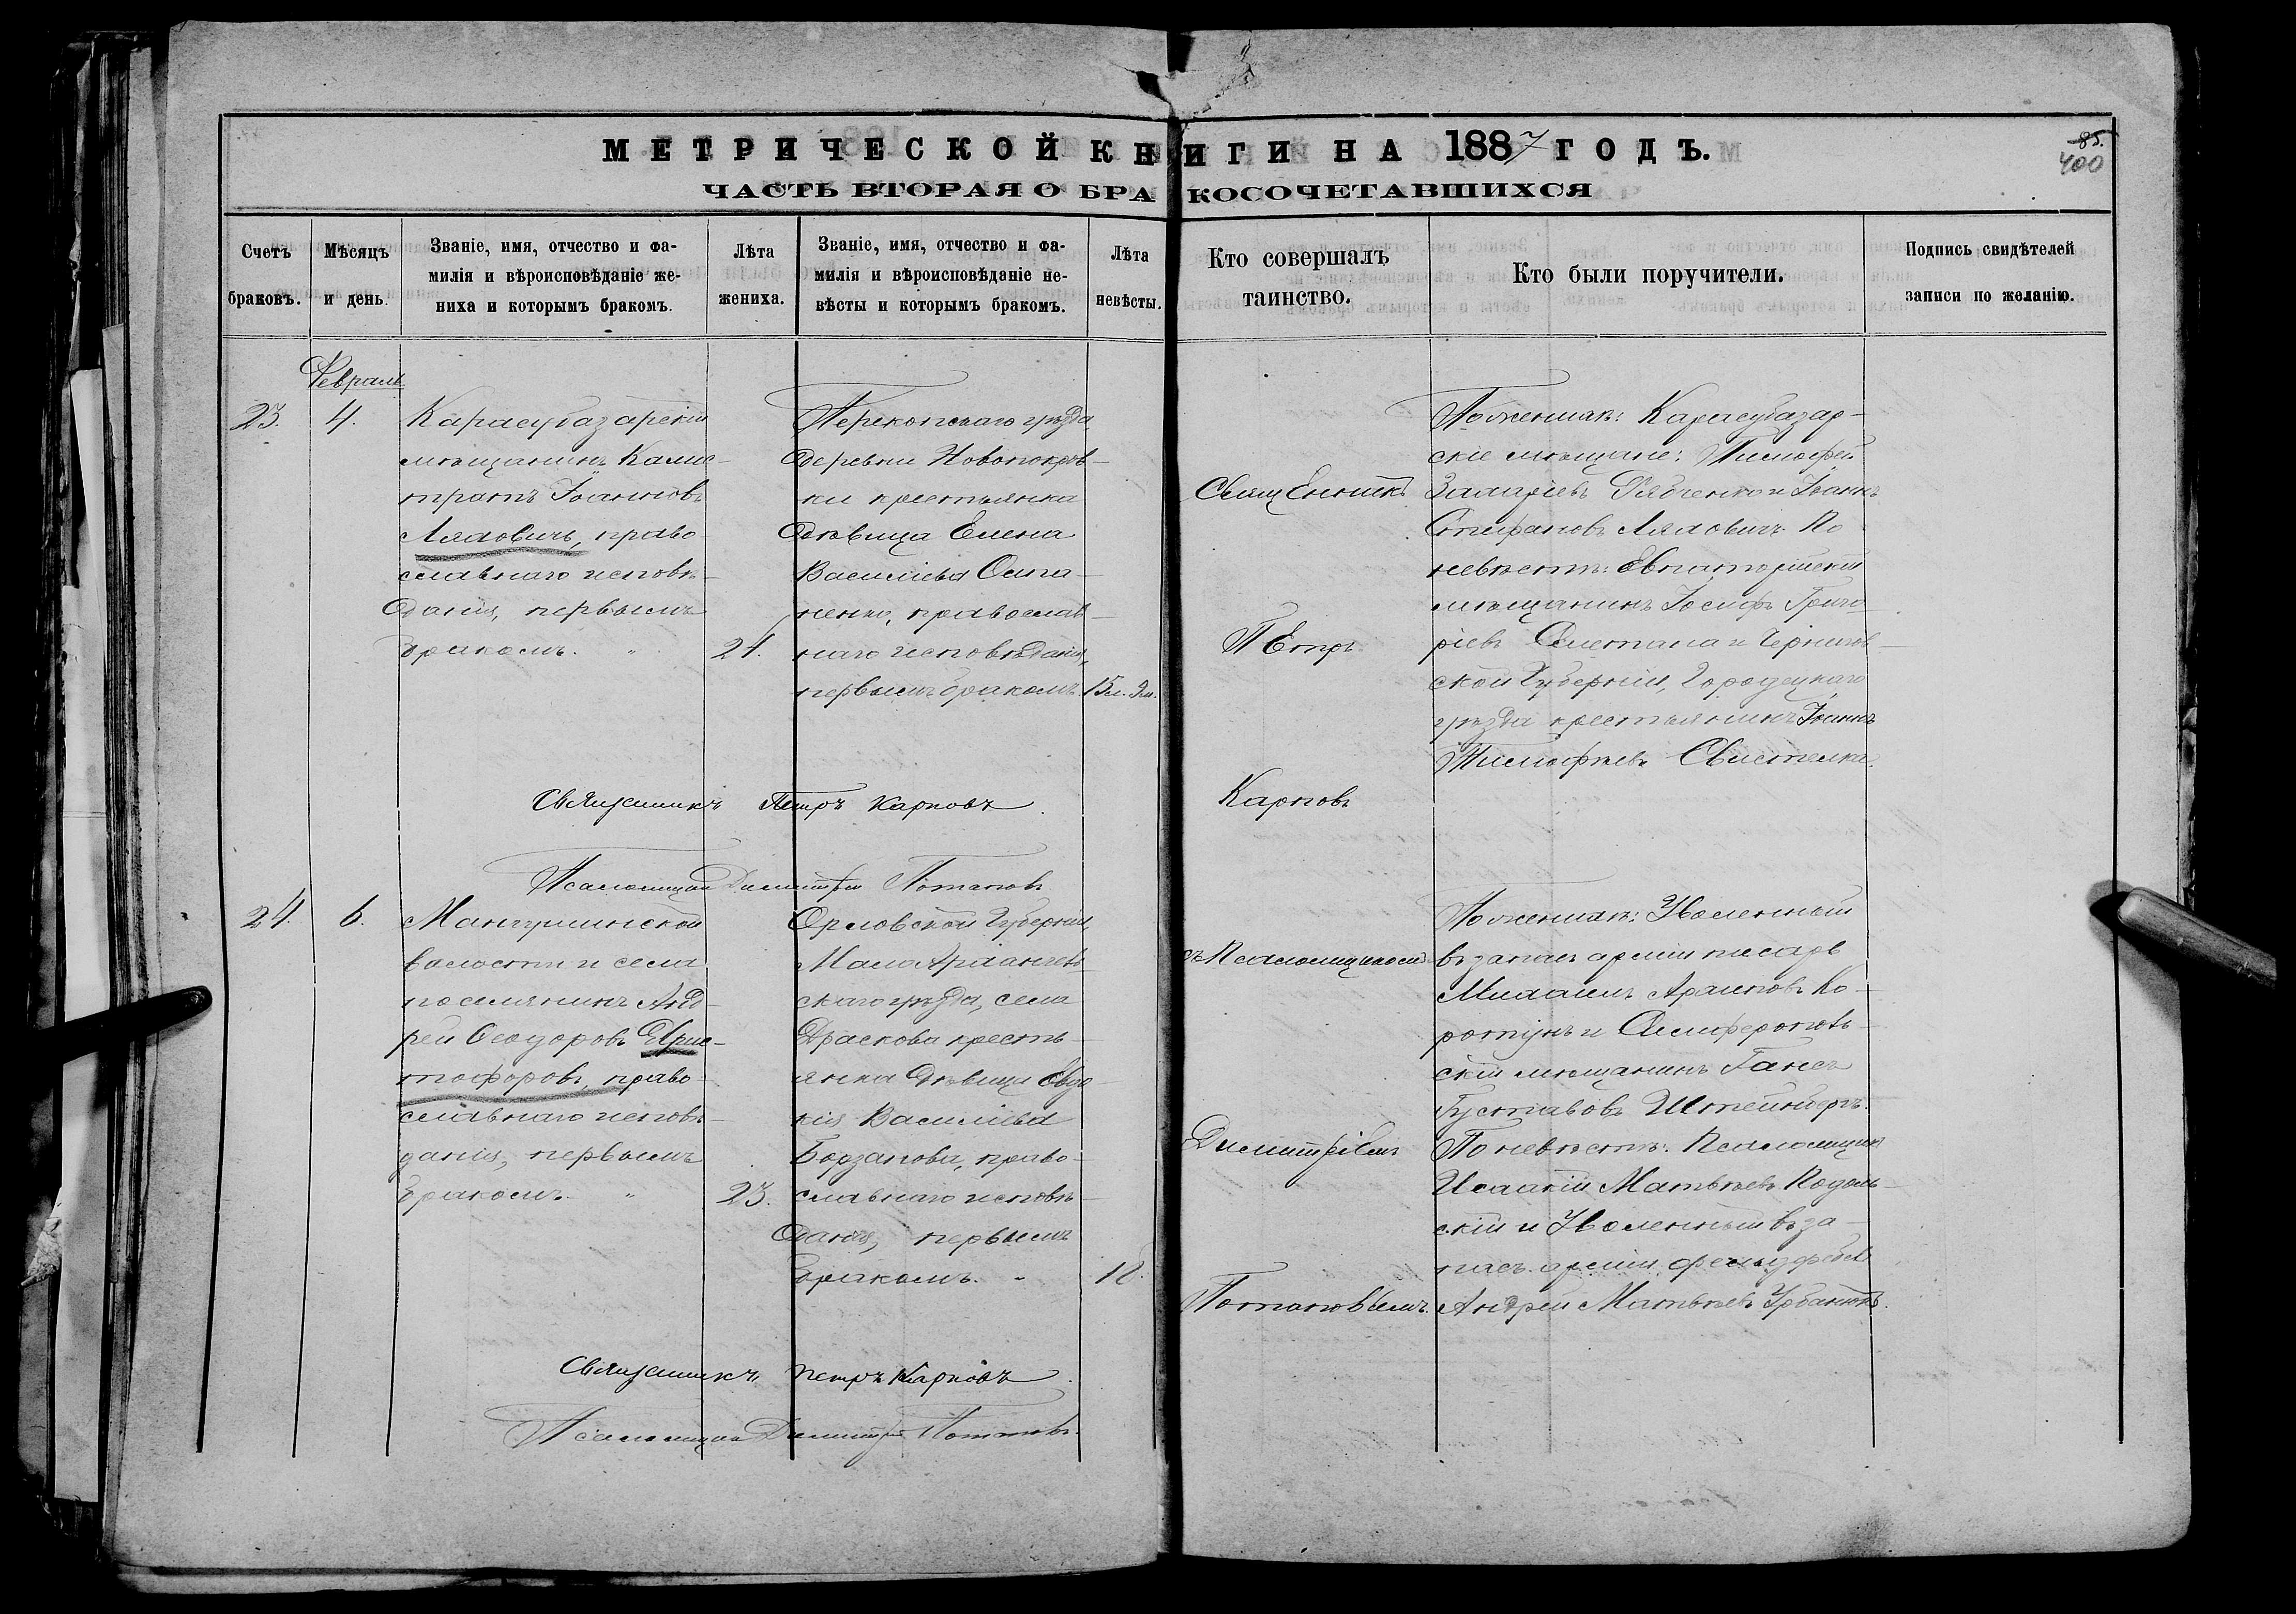 МЕТРИЧЕСКОЙ КНИГИ НА 1887 ГОДЪ.
85.
400
ЧАСТЬ ВТОРАЯ О БРАКОСОЧЕТАВШИХСЯ
Счетъ браковъ.
Мѣсяцъ и день.
Званіе, имя, отчество и фа-
милія и вѣроисповѣданіе же-
ниха и которымъ бракомъ.
Лѣта жениха.
Званіе, имя, отчество и фа-
милія и вѣроисповѣданіе не-
вѣсты и которымъ бракомъ.
Лѣта невѣсты.
Кто совершалъ
таинство.
Кто были поручители.
Подпись свидѣтелей
записи по желанію.
Февраль
23.
4.
Карасубазарскій
мѣщанинъ Калис-
тратъ Іоанновъ
Лядовичъ, право
славнаго исповѣ-
данія, первымъ
бракомъ. "
24.
Перекопскаго уѣзда
деревни Новопокров-
ки крестьянка
дѣвица Елена
Васильева Остап-
ненко, православ-
наго исповѣданія,
первымъ бракомъ.
15 л. 9 м.
Священникъ
Петръ
Карповъ
По женихѣ: Карасубазар-
скіе мѣщане: Тимофей
Захаріевъ Рябченко и Іоаннъ
Стефановъ Лядовичъ. По
невѣстѣ: Евпаторійскій
мѣщанинъ Іосифъ Григо
ріевъ Сметана и Чернигов-
ской Губерніи, Городецкаго
уѣзда крестьянинъ Іоаннъ
Тимофѣевъ Свистелка.
Священникъ Петръ Карповъ.
Псаломщикъ Димитрій Потаповъ
24.
6.
Мангушинской
волости и села
поселянинъ Анд-
рей Ѳеодоровъ Хрис-
тофоровъ, право
славнаго исповѣ-
данія, первымъ
бракомъ. "
23.
Орловской Губерніи,
Мало Архангель
скаго уѣзда, села
Драскова кресть-
янка дѣвица Евдо-
кія Васильева
Борзапова, право-
славнаго исповѣ-
данія, первымъ
бракомъ. "
18.
съ Псаломщикомъ
Димитріемъ
Потаповымъ.
По женихѣ: Уволенный
въ запасъ арміи писарь
Михаилъ Ко-
ротунъ и Симферополь-
скій мѣщанинъ Гансъ
Густавовъ Штейнбергъ.
По невѣстѣ: Псаломщикъ
Исаакій Матвѣевъ Подоль-
скій и Уволенный въ за-
пасъ арміи фельдфебель
Андрей Матвѣевъ Урбановъ.
Священникъ Петръ Карповъ.
Псаломщикъ Димитрій Потаповъ.